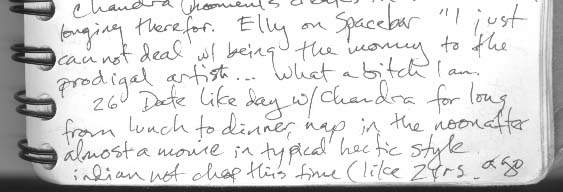 Chandra moments
longing therefor. Elly on Spacebar "I just
can not deal w/ being the mommy to the
prodigal artist... what a bitch I am.
26 Date like day w/ Chandra for long
from lunch to dinner, nap in the noonafter
almost a movie in typical hectic style
indian not chap this time (like 2 yrs. ago